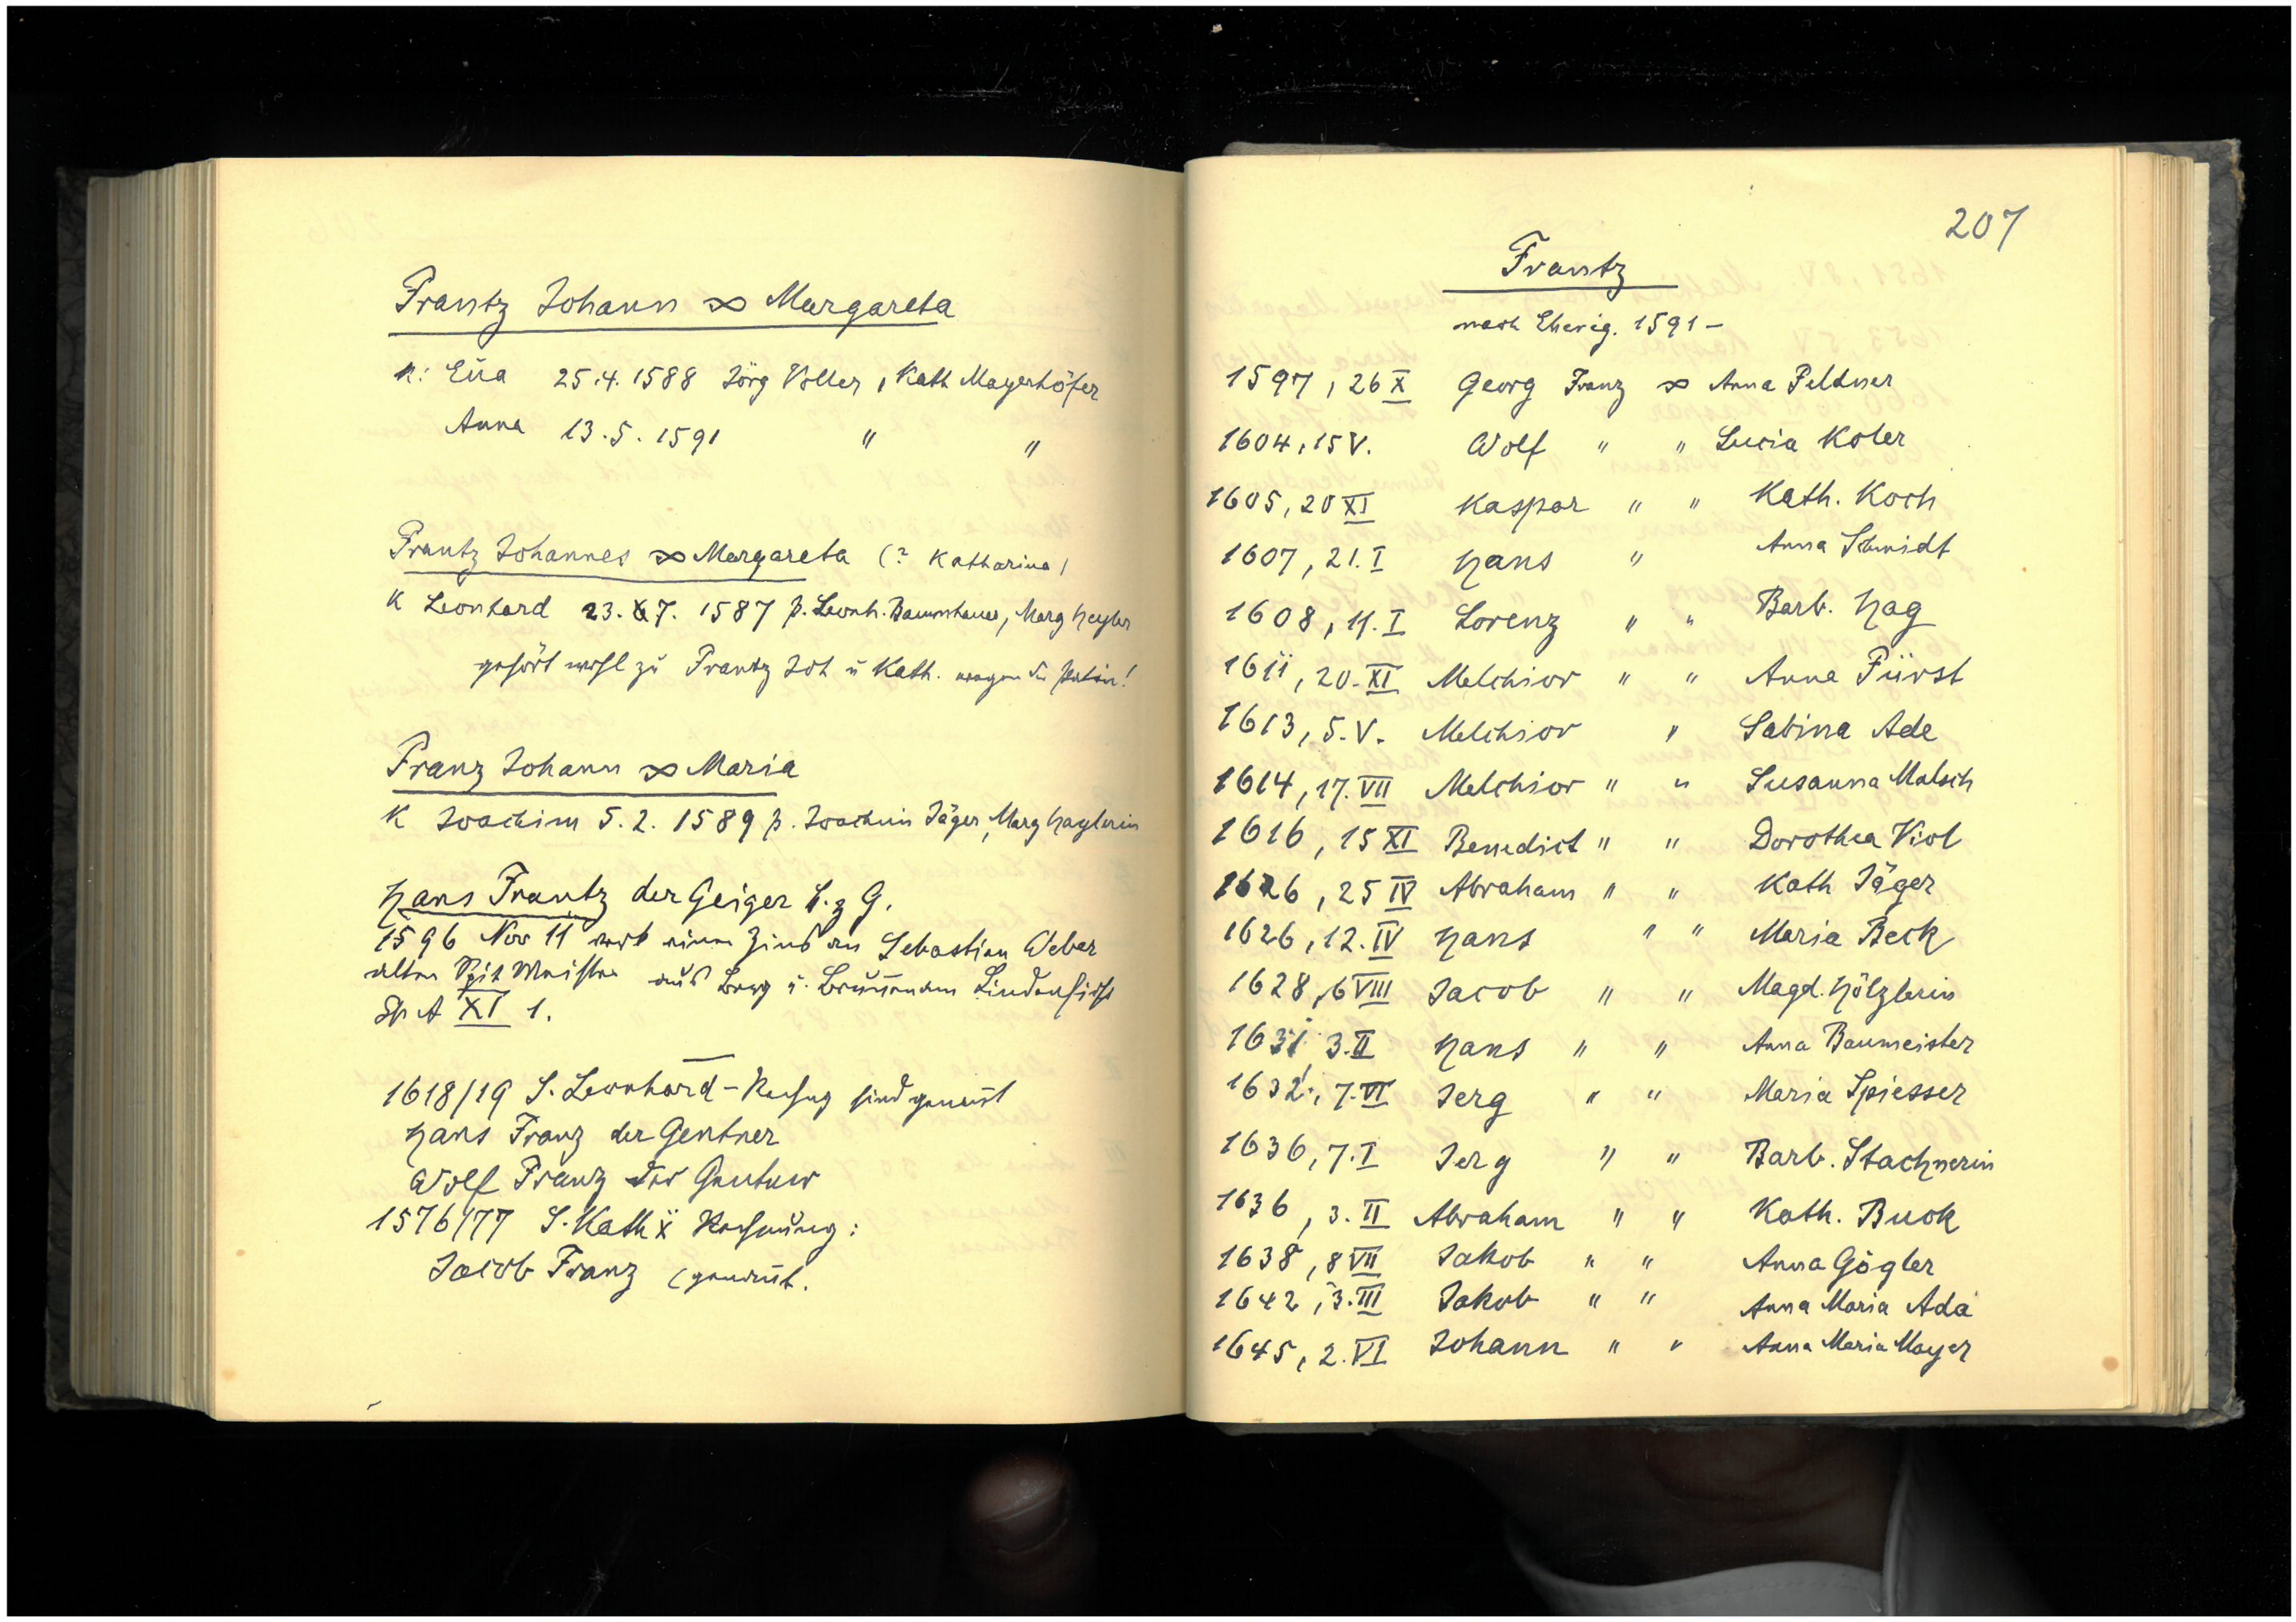 Frantz Johann ∞ Margareta
K: Eva 25.4.1588 Jörg Voller, Kath Mayerhöfer
Anna 13.5.1591 " "
Frantz Johannes ∞ Margareta (? Katharina)
K Leonhard 23.7.1587 p. Leonh. Baumhauer, Marg Heyler
gehört wohl zu Frantz Joh u Kath. wegen der Patin!
Franz Johann ∞ Maria
K Joachim 5.2.1589 p. Joachim Jäger, Marg Haylerin
Hans Frantz der Geiger b. z G.
1596 Nov 11 verk einen Zins an Sebastian Weber
alten aus Berg u.
Sp A XI 1.
1618/19 S. Leonhard-Rechng sind genannt
Hans Franz der Gentner
Wolf Franz der Gentner
1576/77 S. Kath Rechnung:
Jacob Franz genannt.
207
Frantz
nach Ehereg. 1591 -
1597, 26 X Georg Franz ∞ Anna Feldner
1604, 15 V. Wolf " " Lucia Koler
1605, 20 XI Kaspar " " Kath. Koch
1607, 21. I Hans " Anna Schmidt
1608, 11. I Lorenz " " Barb. Hag
1611, 20. XI Melchior " " Anna Fürst
1613, 5. V. Melchior " Sabina Ade
1614, 17. VII Melchior " " Susanna Malsch
1616, 15 XI Benedict " " Dorothea Viol
1626, 25 IV Abraham " " Kath Jäger
1626, 12. IV Hans " " Maria Beck
1628, 6 VIII Jacob " " Magd. Hölzlerin
1631 3. II Hans " " Anna Baumeister
1632, 7. VI Jerg " " Maria Spiesser
1636, 7. I Jerg " " Barb. Stachnerin
1636, 3. II Abraham " " Kath. Buck
1638, 8 VII Jakob " " Anna Gögler
1642, 3. III Jakob " " Anna Maria Ada
1645, 2. VI Johann " " Anna Maria Mayer